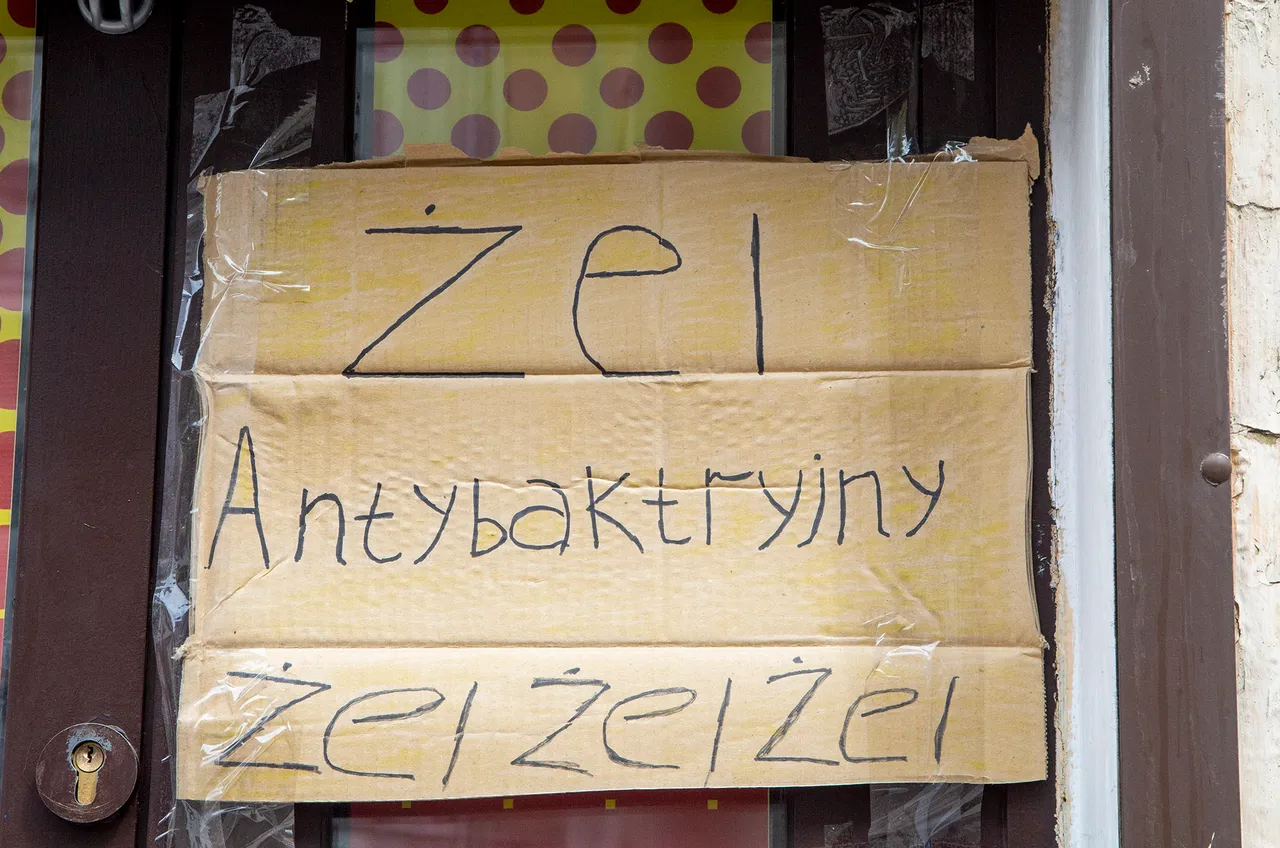 Żel
Antybaktryjny
Żel Żel Żel